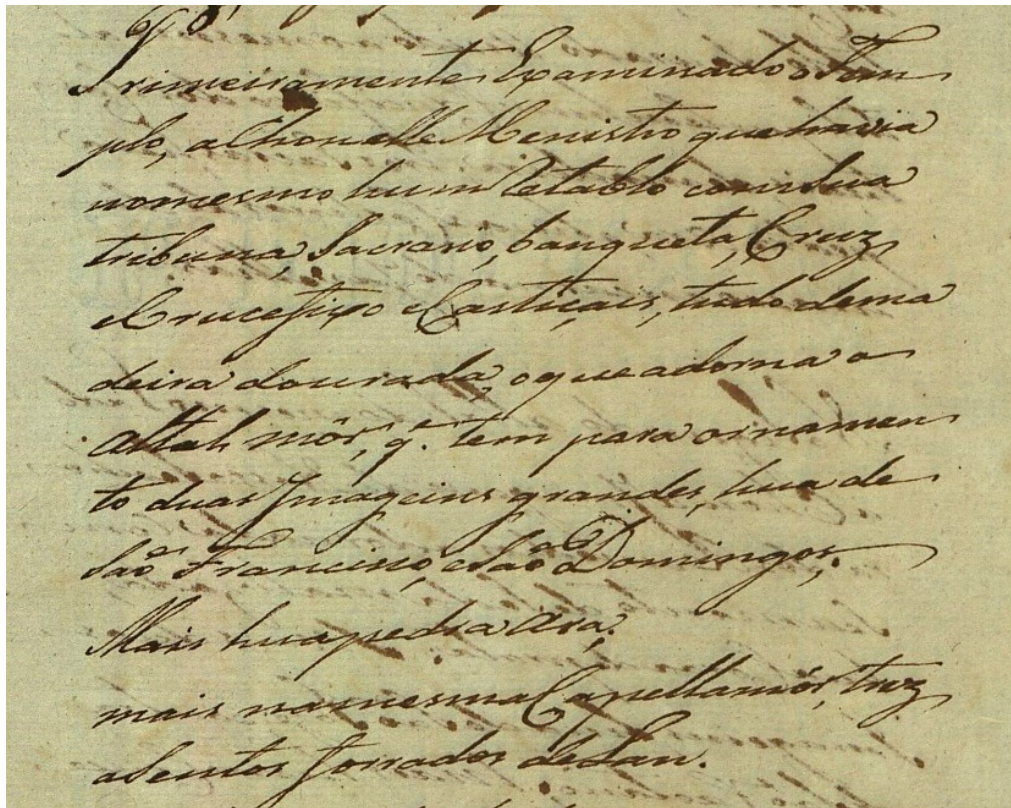 Primeiramente Examinado o Tem
plo, achou elle Menistro que havia
no mesmo hum Retablo com sua
tribuna, Sacrario, banqueta, Cruz,
e Crucefixo e Castiçais, tudo de ma
deira dourada, o que adorna o
altar mór, q.e tem para ornamen
to duas Imageins grandes, hua de
São Francisco, e São Domingos,
Mais hua pedra Ara,
mais na mesma Capella mór, trez
asentos forrados de